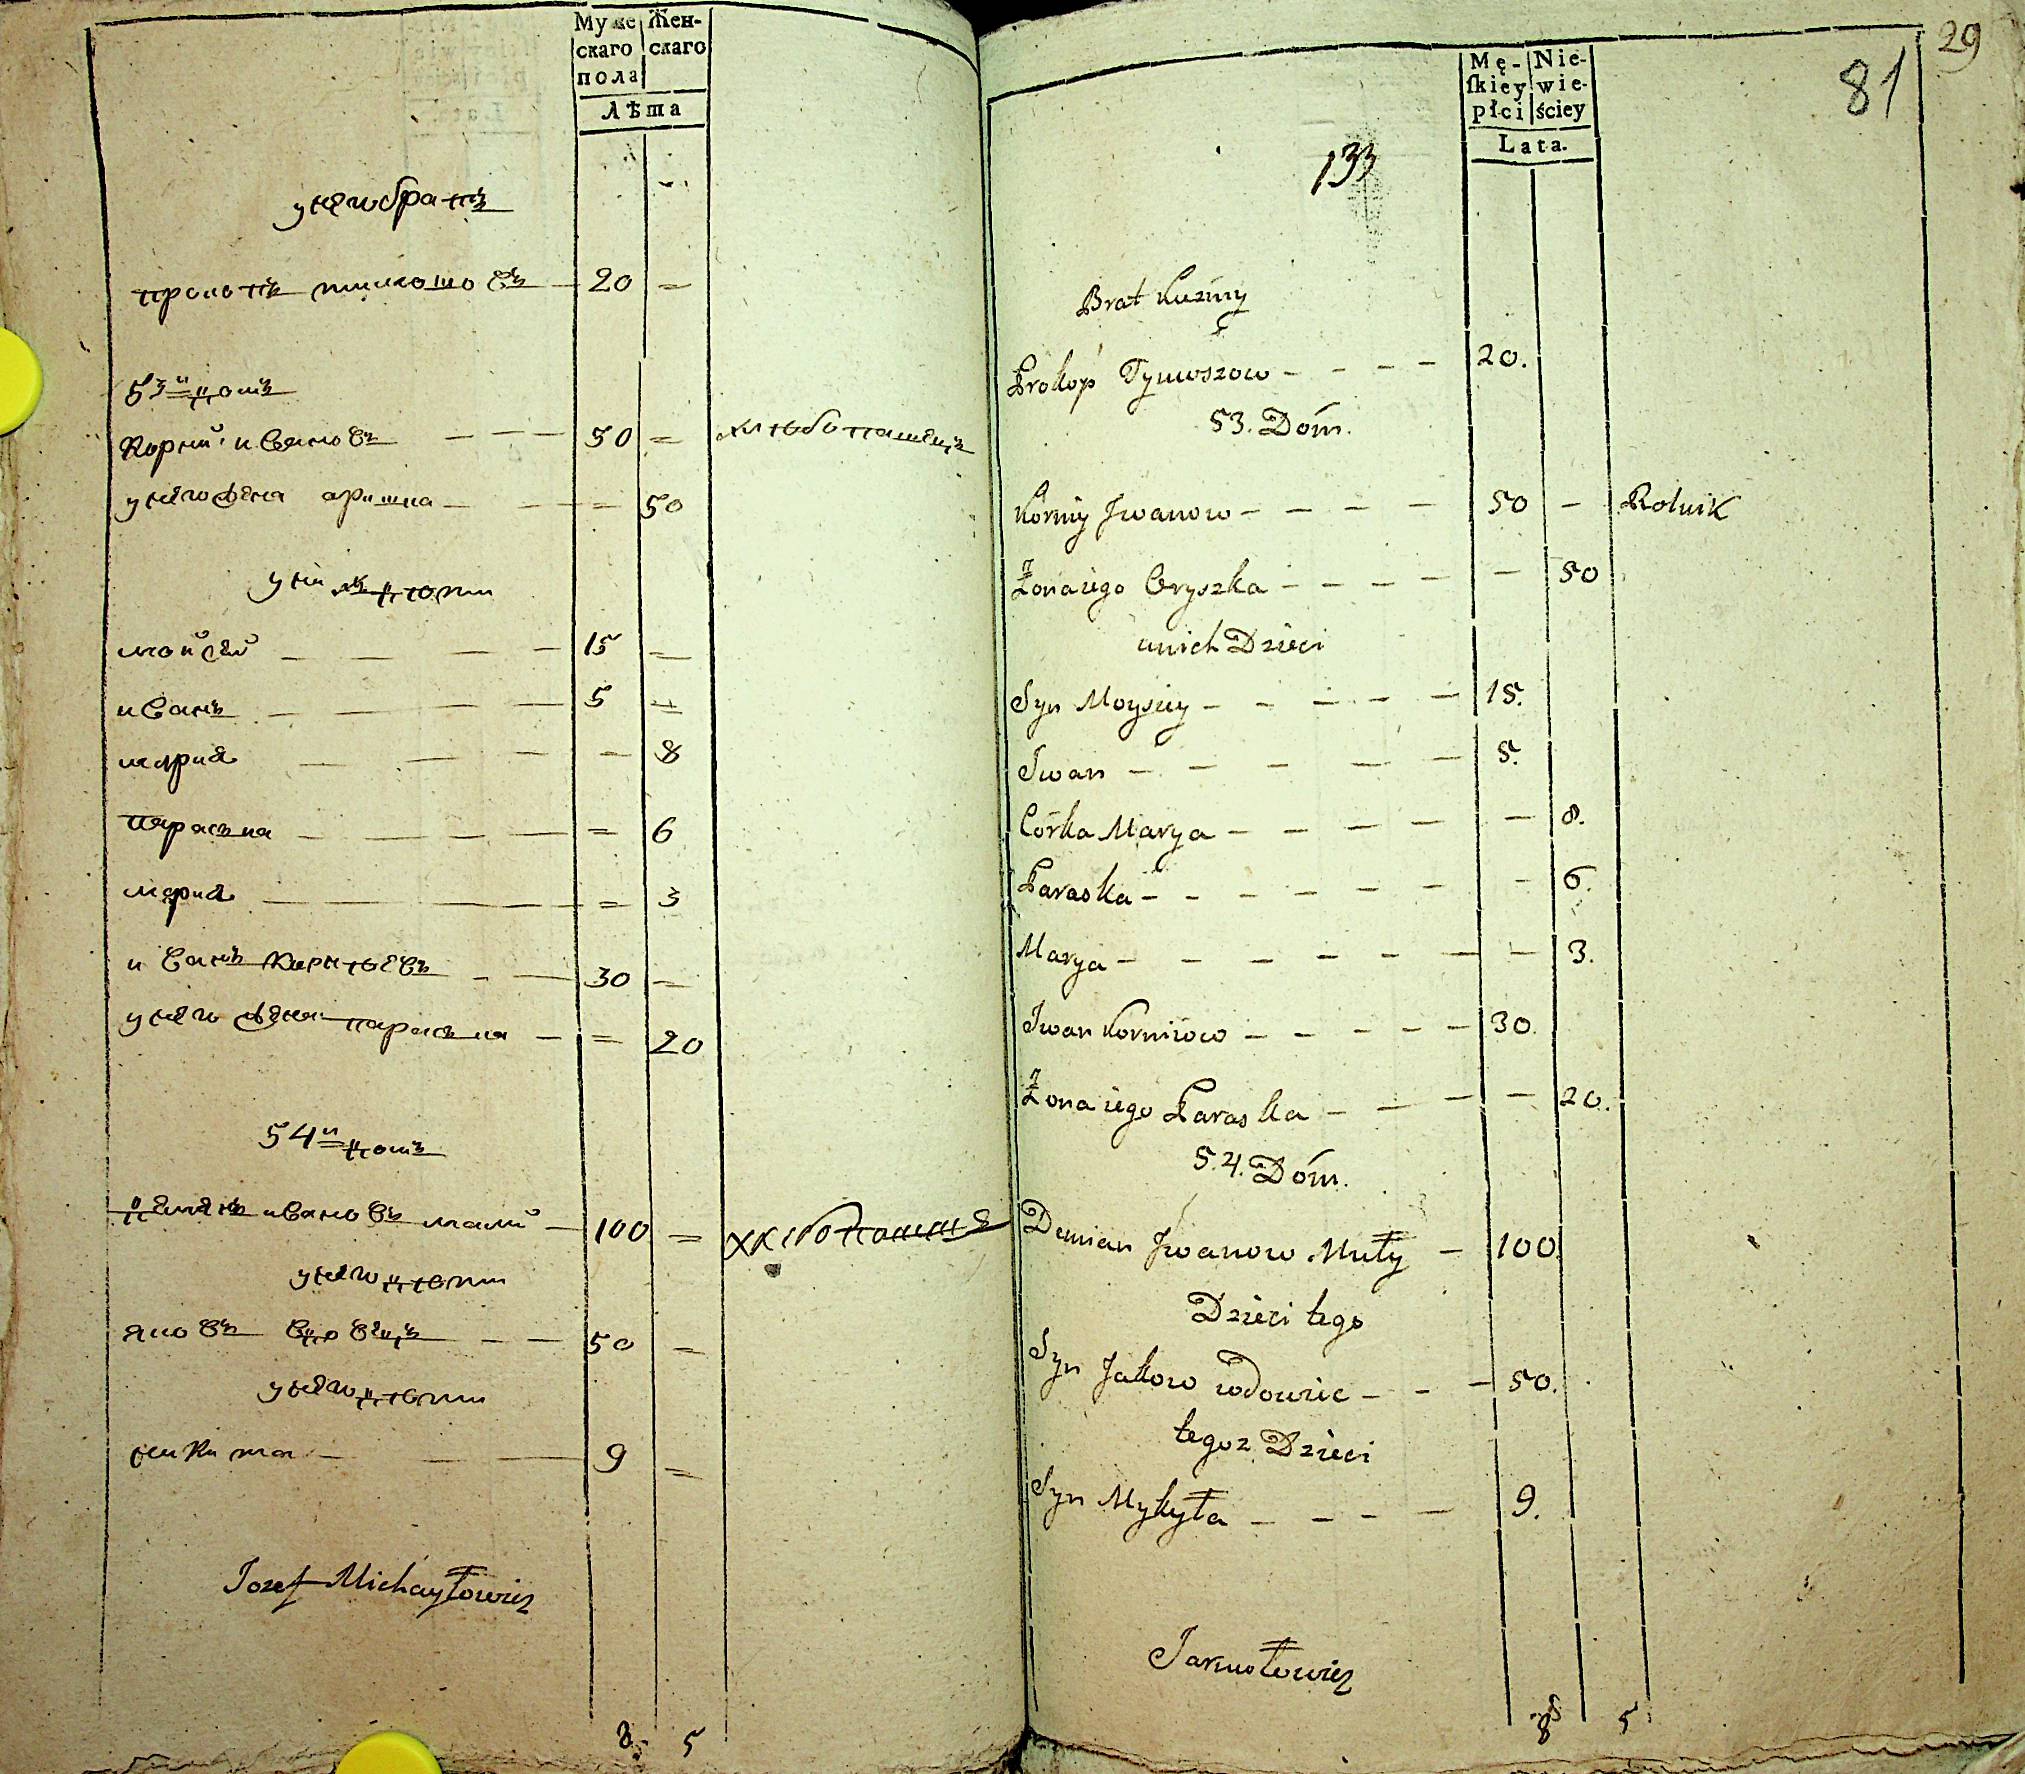 Мужескаго пола
Женскаго
Лѣта
у него братъ
прокопъ тимошовъ — 20 =
53й домъ
Корнiй ивановъ — — — 50 = хлѣбопашецъ
у него жена оришка — — = 50
у них дѣти
мойсей — — — — 15 —
иванъ — — — — — 5 =
мария — — — — 8
параска — — — — = 6
мария — — — = 3
иванъ Корнѣевъ — — 30 —
у него жена параска — = 20
54й домъ
демянъ ивановъ малий — 100 = хлібопашец
у него дѣти
яковъ вдовецъ — — 50 =
у него дѣти
никита — — — 9 =
Jozef Michayłowicz
8 5
29
81
Męskiey płci
Niewieściey
Lata.
133
Brat Kuzmy
Prokop Tymoszow - - - - 20.
53. Dóm.
Korniy Jwanow - - - - 50 - Rolnik
Żona iego Oryszka - - - - - 50
u nich Dzieci
Syn Moysiey - - - - - 15.
Jwan - - - - - 5.
Córka Marya - - - - - 8.
Paraska - - - - - - - 6.
Marya - - - - - - - - 3.
Jwan Korniiow - - - - - 30.
Żona iego Paraska - - - - 20.
54. Dóm.
Demian Jwanow Mały - 100.
Dzieci tego
Syn Jakow wdowiec - - - 50.
tegoz Dzieci
Syn Mykyta - - - - 9.
Jarmołowicz
8 5